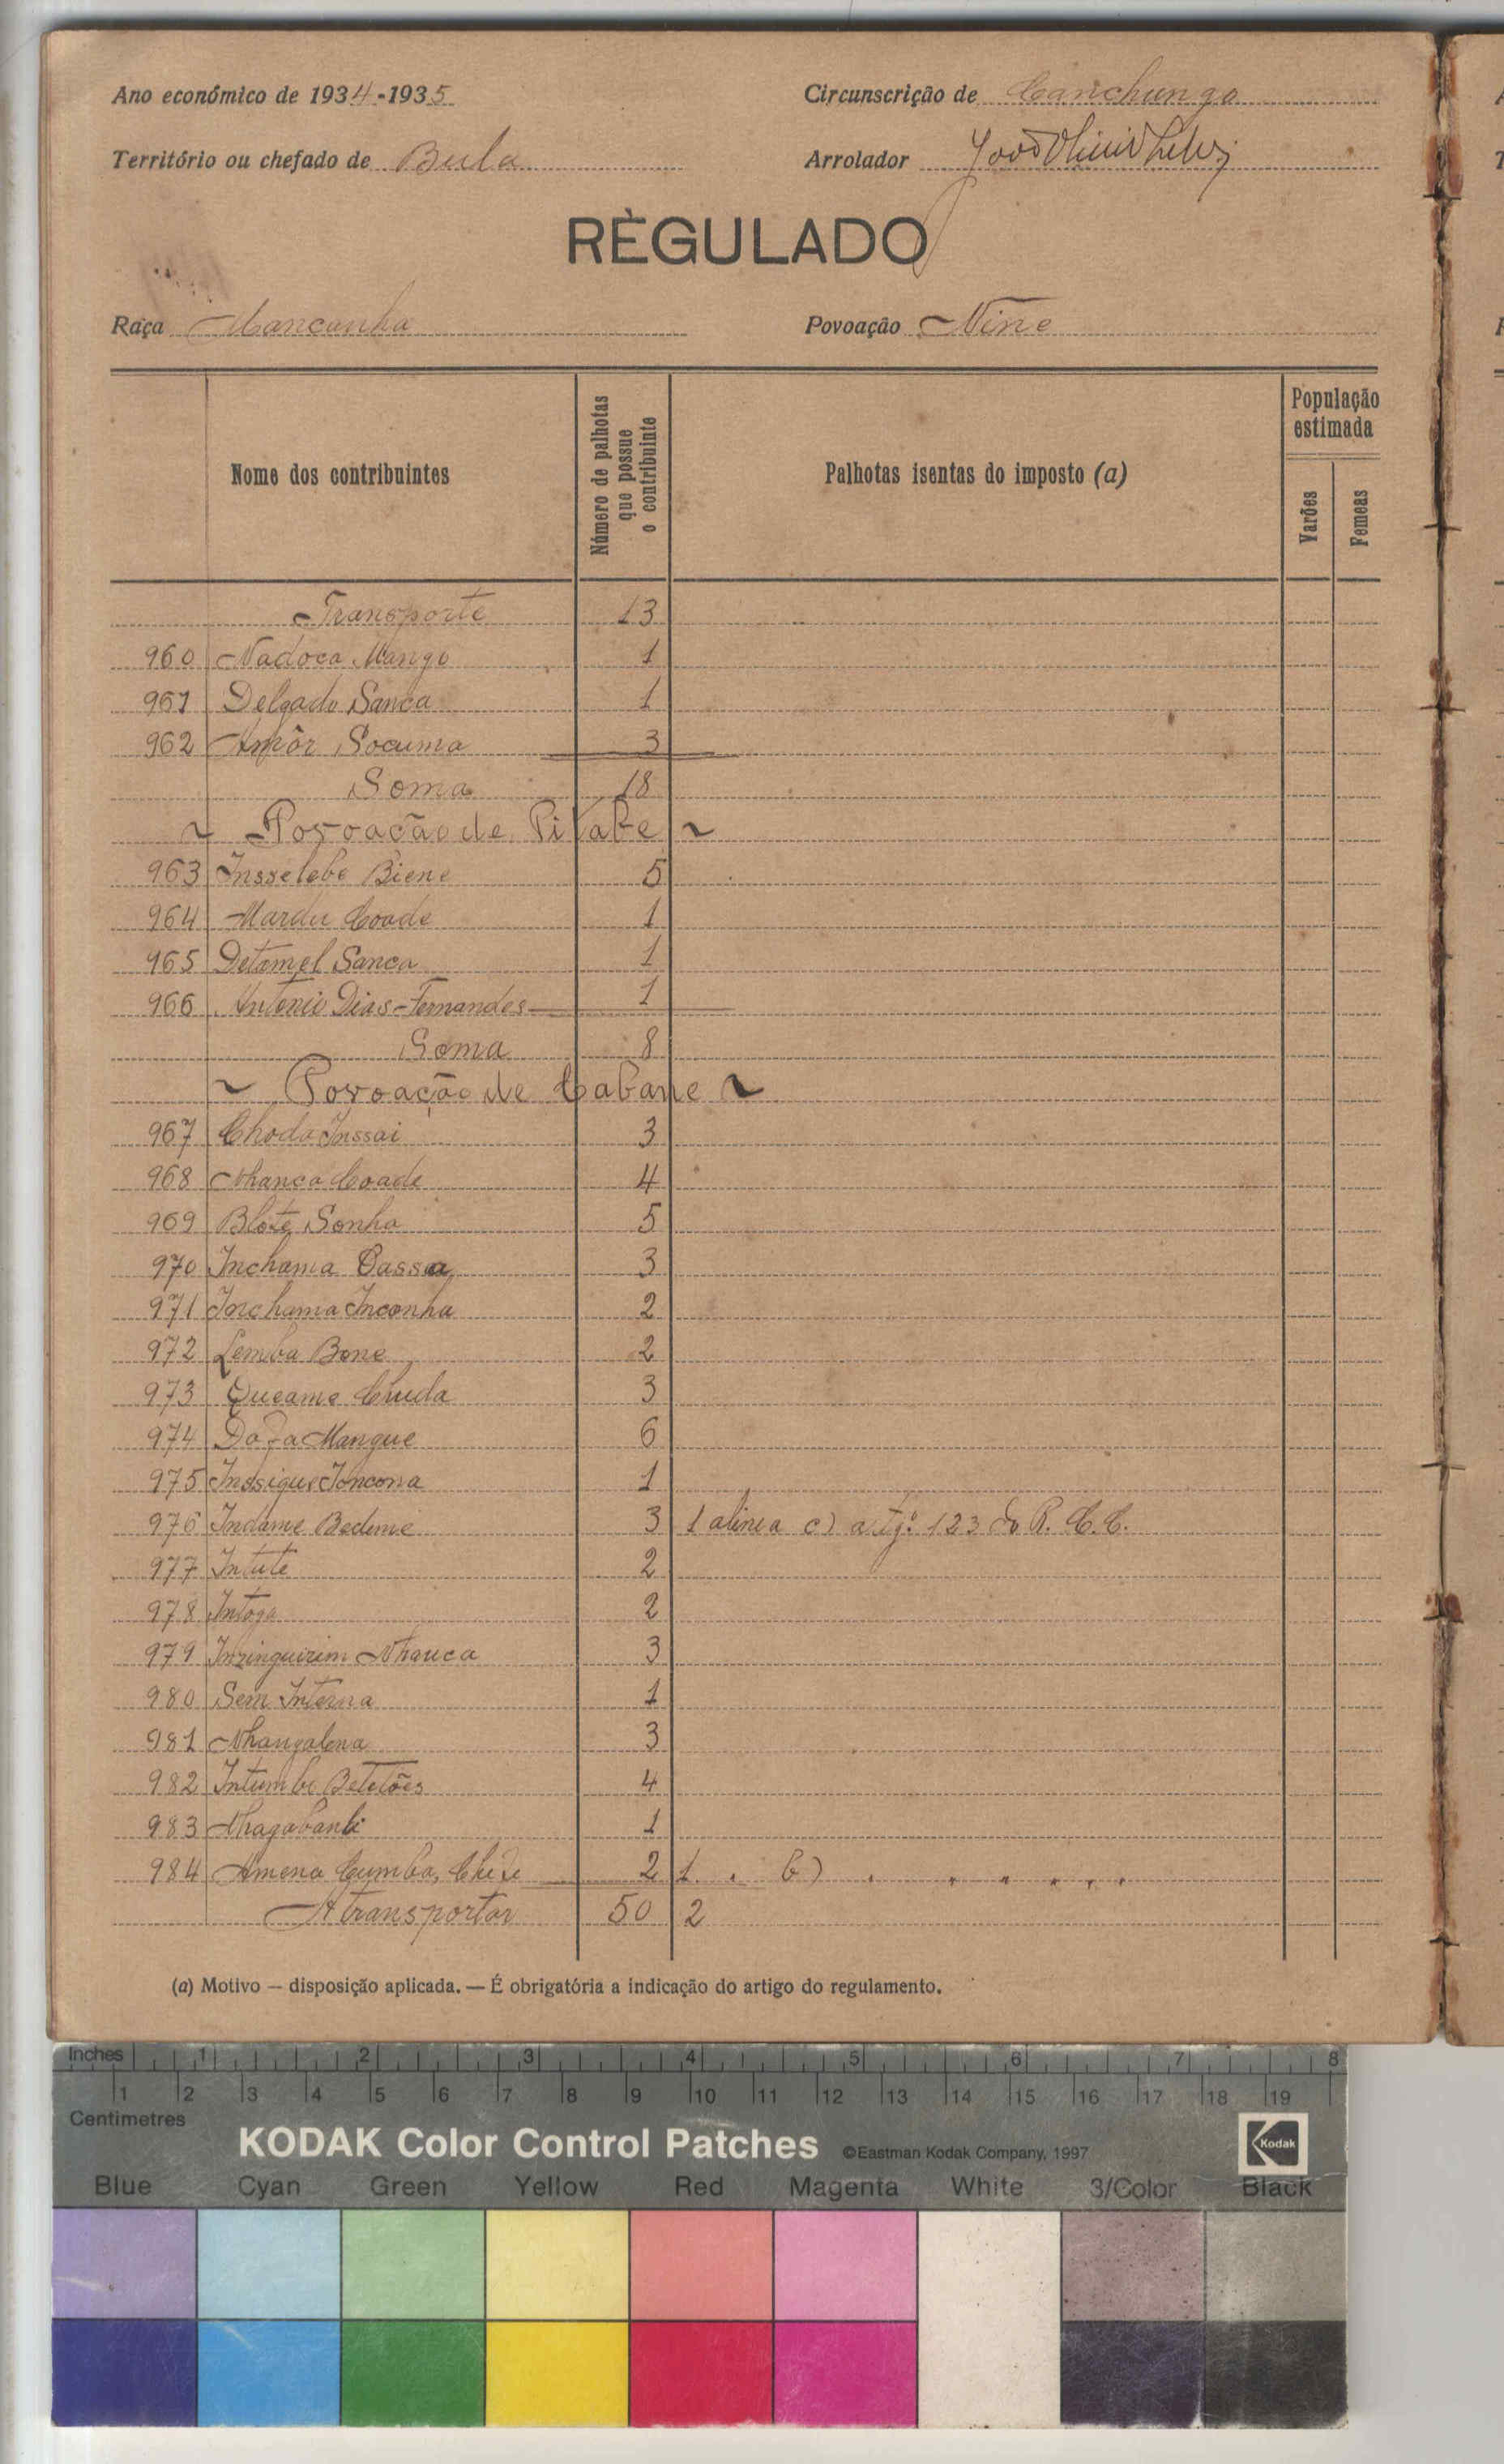 Ano económico de 1934-1935 Circunscrição de Canchungo
Território ou chefado de Bula Arrolador
RÈGULADO
Raça Mancanha Povoação Nine
Nome dos contribuintes
Número de palhotas que possue o contribuinte
Palhotas isentas do imposto (a)
População estimada
Varões
Femeas
Transporte 13
960 Nadoca Mango 1
961 Delgado Sanca 1
962 Ampôr Socuma 3
Soma 18
~ Povoação de ~
963 Insselebe Biene 5
964 Mardu Coade 1
965 Detomel Sanca 1
966 Antonio Dias-Fernandes 1
Soma 8
~ Povoação de Cabane ~
967 Choda Inssai 3
968 Nhanca Coade 4
969 Blote Sonho 5
970 Inchama Cassa 3
971 Inchama Inconha 2
972 Lemba Bone 2
973 Queame Chuda 3
974 Dofa Mangue 6
975 1
976 Indame Bedeme 3 1 alinea c) artgº 123 do R. C. C.
977 Intute 2
978 Intoga 2
979 Inringuirim Nhauca 3
980 Sem Interna 1
981 Nhangalena 3
982 Intumbe 4
983 1
984 Amena Cumba, 2 1 " b) " " " " " "
A transportar 50 2
(a) Motivo — disposição aplicada. — É obrigatória a indicação do artigo do regulamento.
Inches 1 2 3 4 5 6 7 8
1 2 3 4 5 6 7 8 9 10 11 12 13 14 15 16 17 18 19
Centimetres
KODAK Color Control Patches ©Eastman Kodak Company, 1997 Kodak
Blue Cyan Green Yellow Red Magenta White 3/Color Black